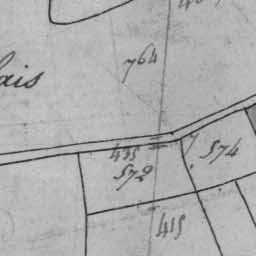 764
ais
435
572
574
415